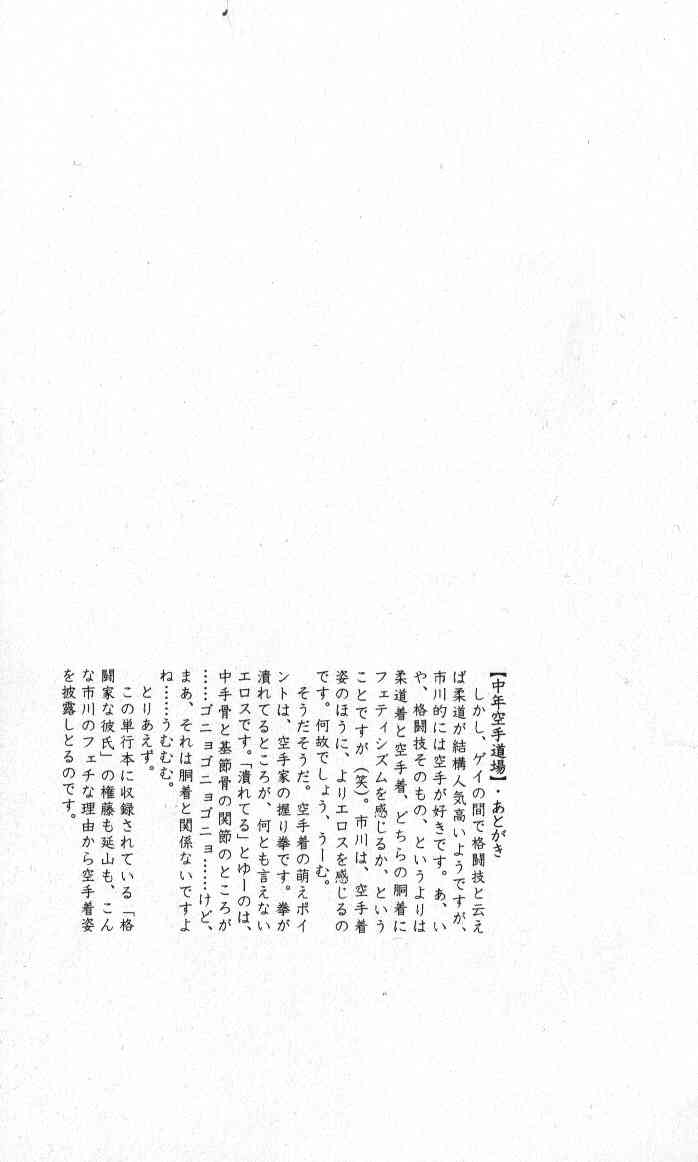 【中年空手道場】・あとがき
しかし、ゲイの間で格闘技と云え
ば柔道が結構人気高いようですが、
市川的には空手が好きです。あ、い
や、格闘技そのもの、というよりは
柔道着と空手着、どちらの胴着に
フェティシズムを感じるか、という
ことですが（笑）。市川は、空手着
姿のほうに、よりエロスを感じるの
です。何故でしょう、うーむ。
そうだそうだ。空手着の萌えポイ
ントは、空手家の握り拳です。拳が
潰れてるところが、何とも言えない
エロスです。「潰れてる」とゆーのは、
中手骨と基節骨の関節のところが
……ゴニョゴニョゴニョ……けど、
まあ、それは胴着と関係ないですよ
ね……うむむむ。
とりあえず。
この単行本に収録されている「格
闘家な彼氏」の権藤も延山も、こん
な市川のフェチな理由から空手着姿
を披露しとるのです。